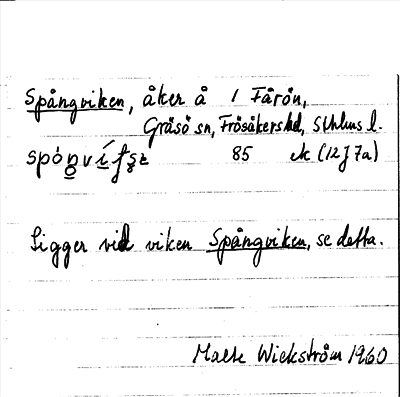 Spångviken, åker å 1 Fårön,
Gräsö sn, Frösåkers hd, Sthlms l.
85 ek (12J7a)
Ligger vid viken Spångviken, se detta.
Malte Wickström 1960